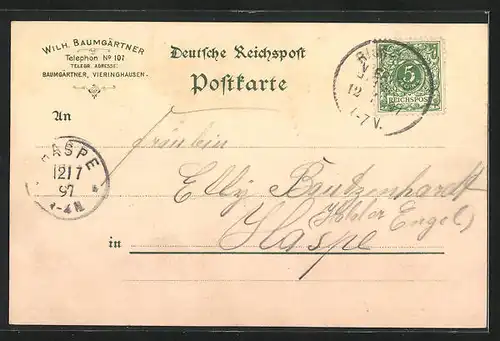 WILH. BAUMGÄRTNER
Telephon No 107
TELEGR. ADRESSE:
BAUMGÄRTNER, VIERINGHAUSEN.
Deutsche Reichspost
Postkarte
5
REICHSPOST
12
1-7 V.
An
Fräulein
HASPE
12 7
97
Elly Bautzenhardt
(Kohler Engel)
in Haspe